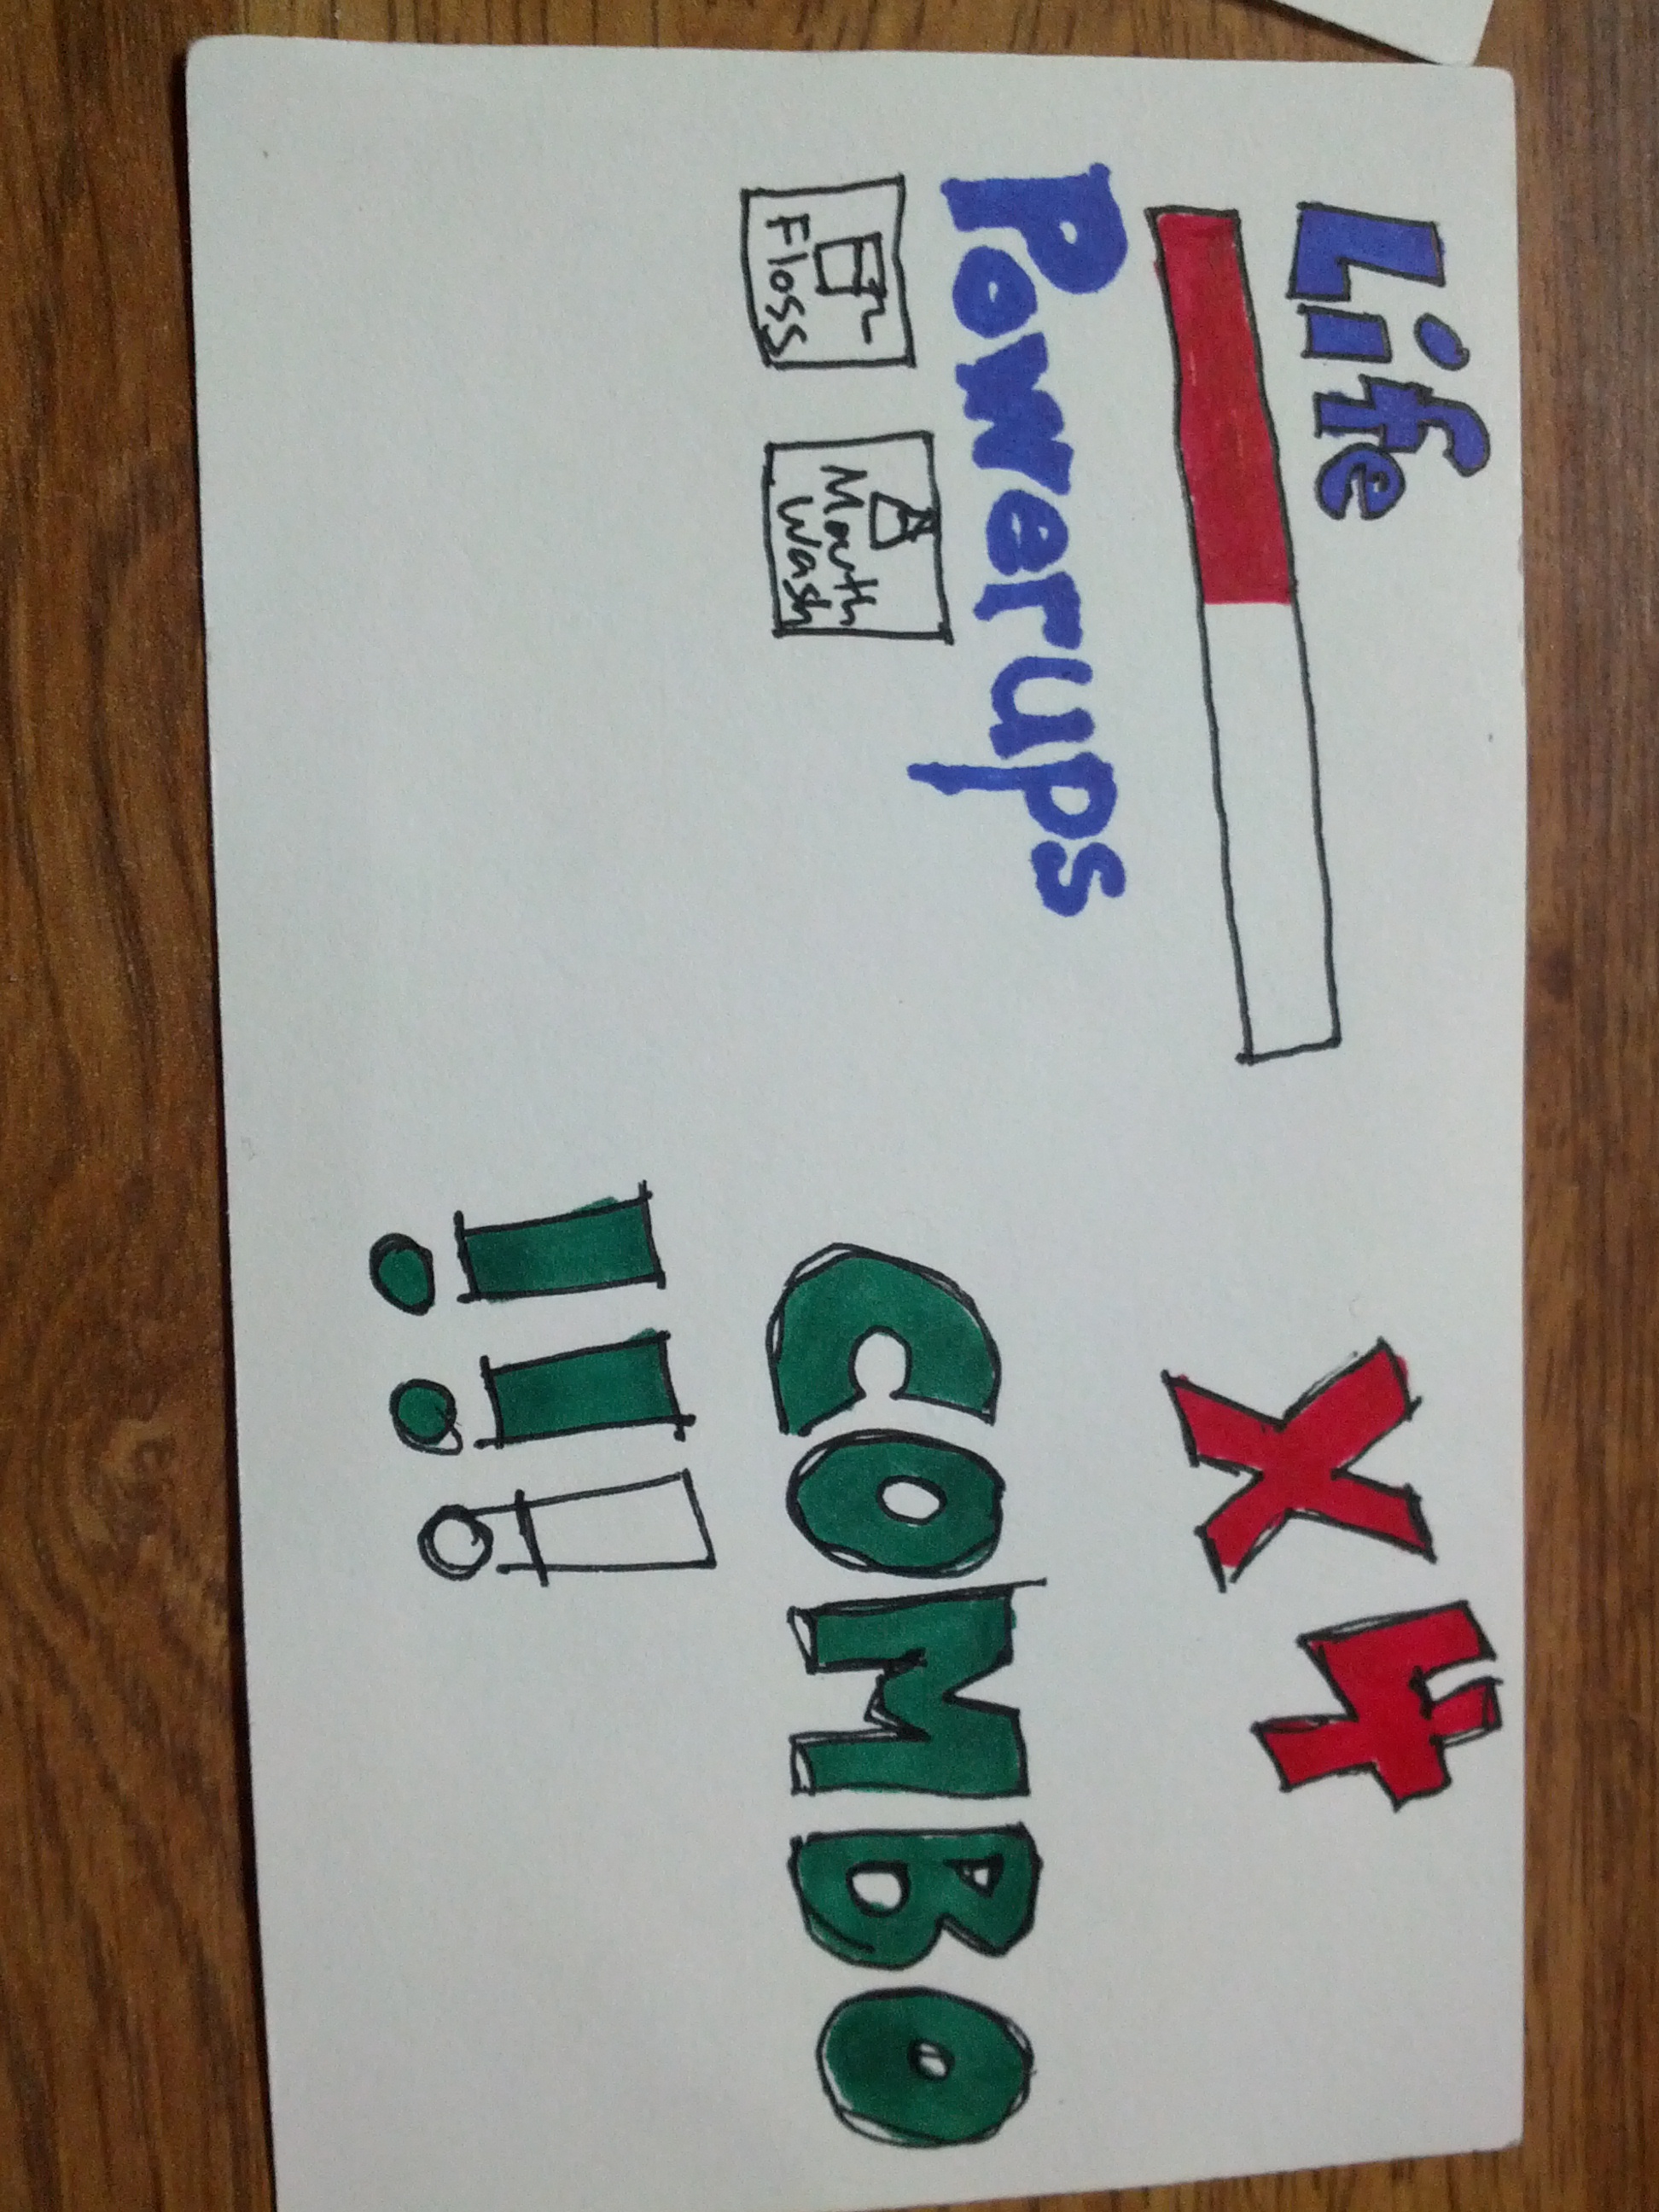 Life
Powerups
Floss
Mouth
Wash
X4
COMBO
!!!